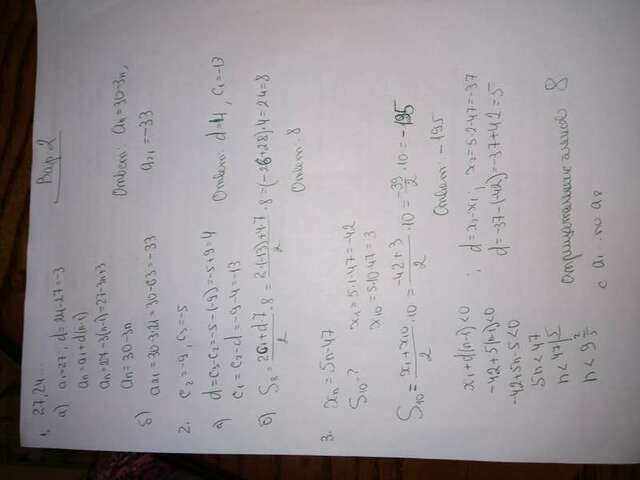 Вар 2
1. 27, 24...
а) a₁=27; d=24-27=-3
aₙ=a₁+d(n-1)
aₙ=27-3(n-1)=27-3n+3
aₙ=30-3n
б) a₂₁=30-3·21=30-63=-33
Ответ: aₙ=30-3n,
a₂₁=-33
2. c₂=-9, c₃=-5
а) d=c₃-c₂=-5-(-9)=-5+9=4
c₁=c₂-d=-9-4=-13
Ответ: d=4, c₁=-13
б) S₈=(2c₁+d7)/2·8=(2(-13)+4·7)/2·8=(-26+28)·4=2·4=8
Ответ: 8
3. xₙ=5n-47
S₁₀-?
x₁=5·1-47=-42
x₁₀=5·10-47=3
S₁₀=(x₁+x₁₀)/2·10=(-42+3)/2·10=-39/2·10=-195
Ответ: -195
x₁+d(n-1)<0 ; d=x₂-x₁; x₂=5·2-47=-37
-42+5(n-1)<0 d=-37-(-42)=-37+42=5
-42+5n-5<0
5n<47
n<47|5
n<9 2/5
Отрицательных членов 8
с a₁ по a₈